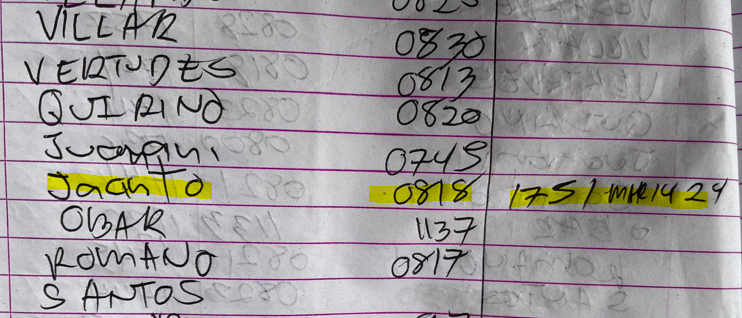 VILLAR 0830
VERTUDES 0813
QUIRINO 0820
0745
Jacinto 0818 1751 MAR 14 24
OBAR 1137
ROMANO 0817
SANTOS